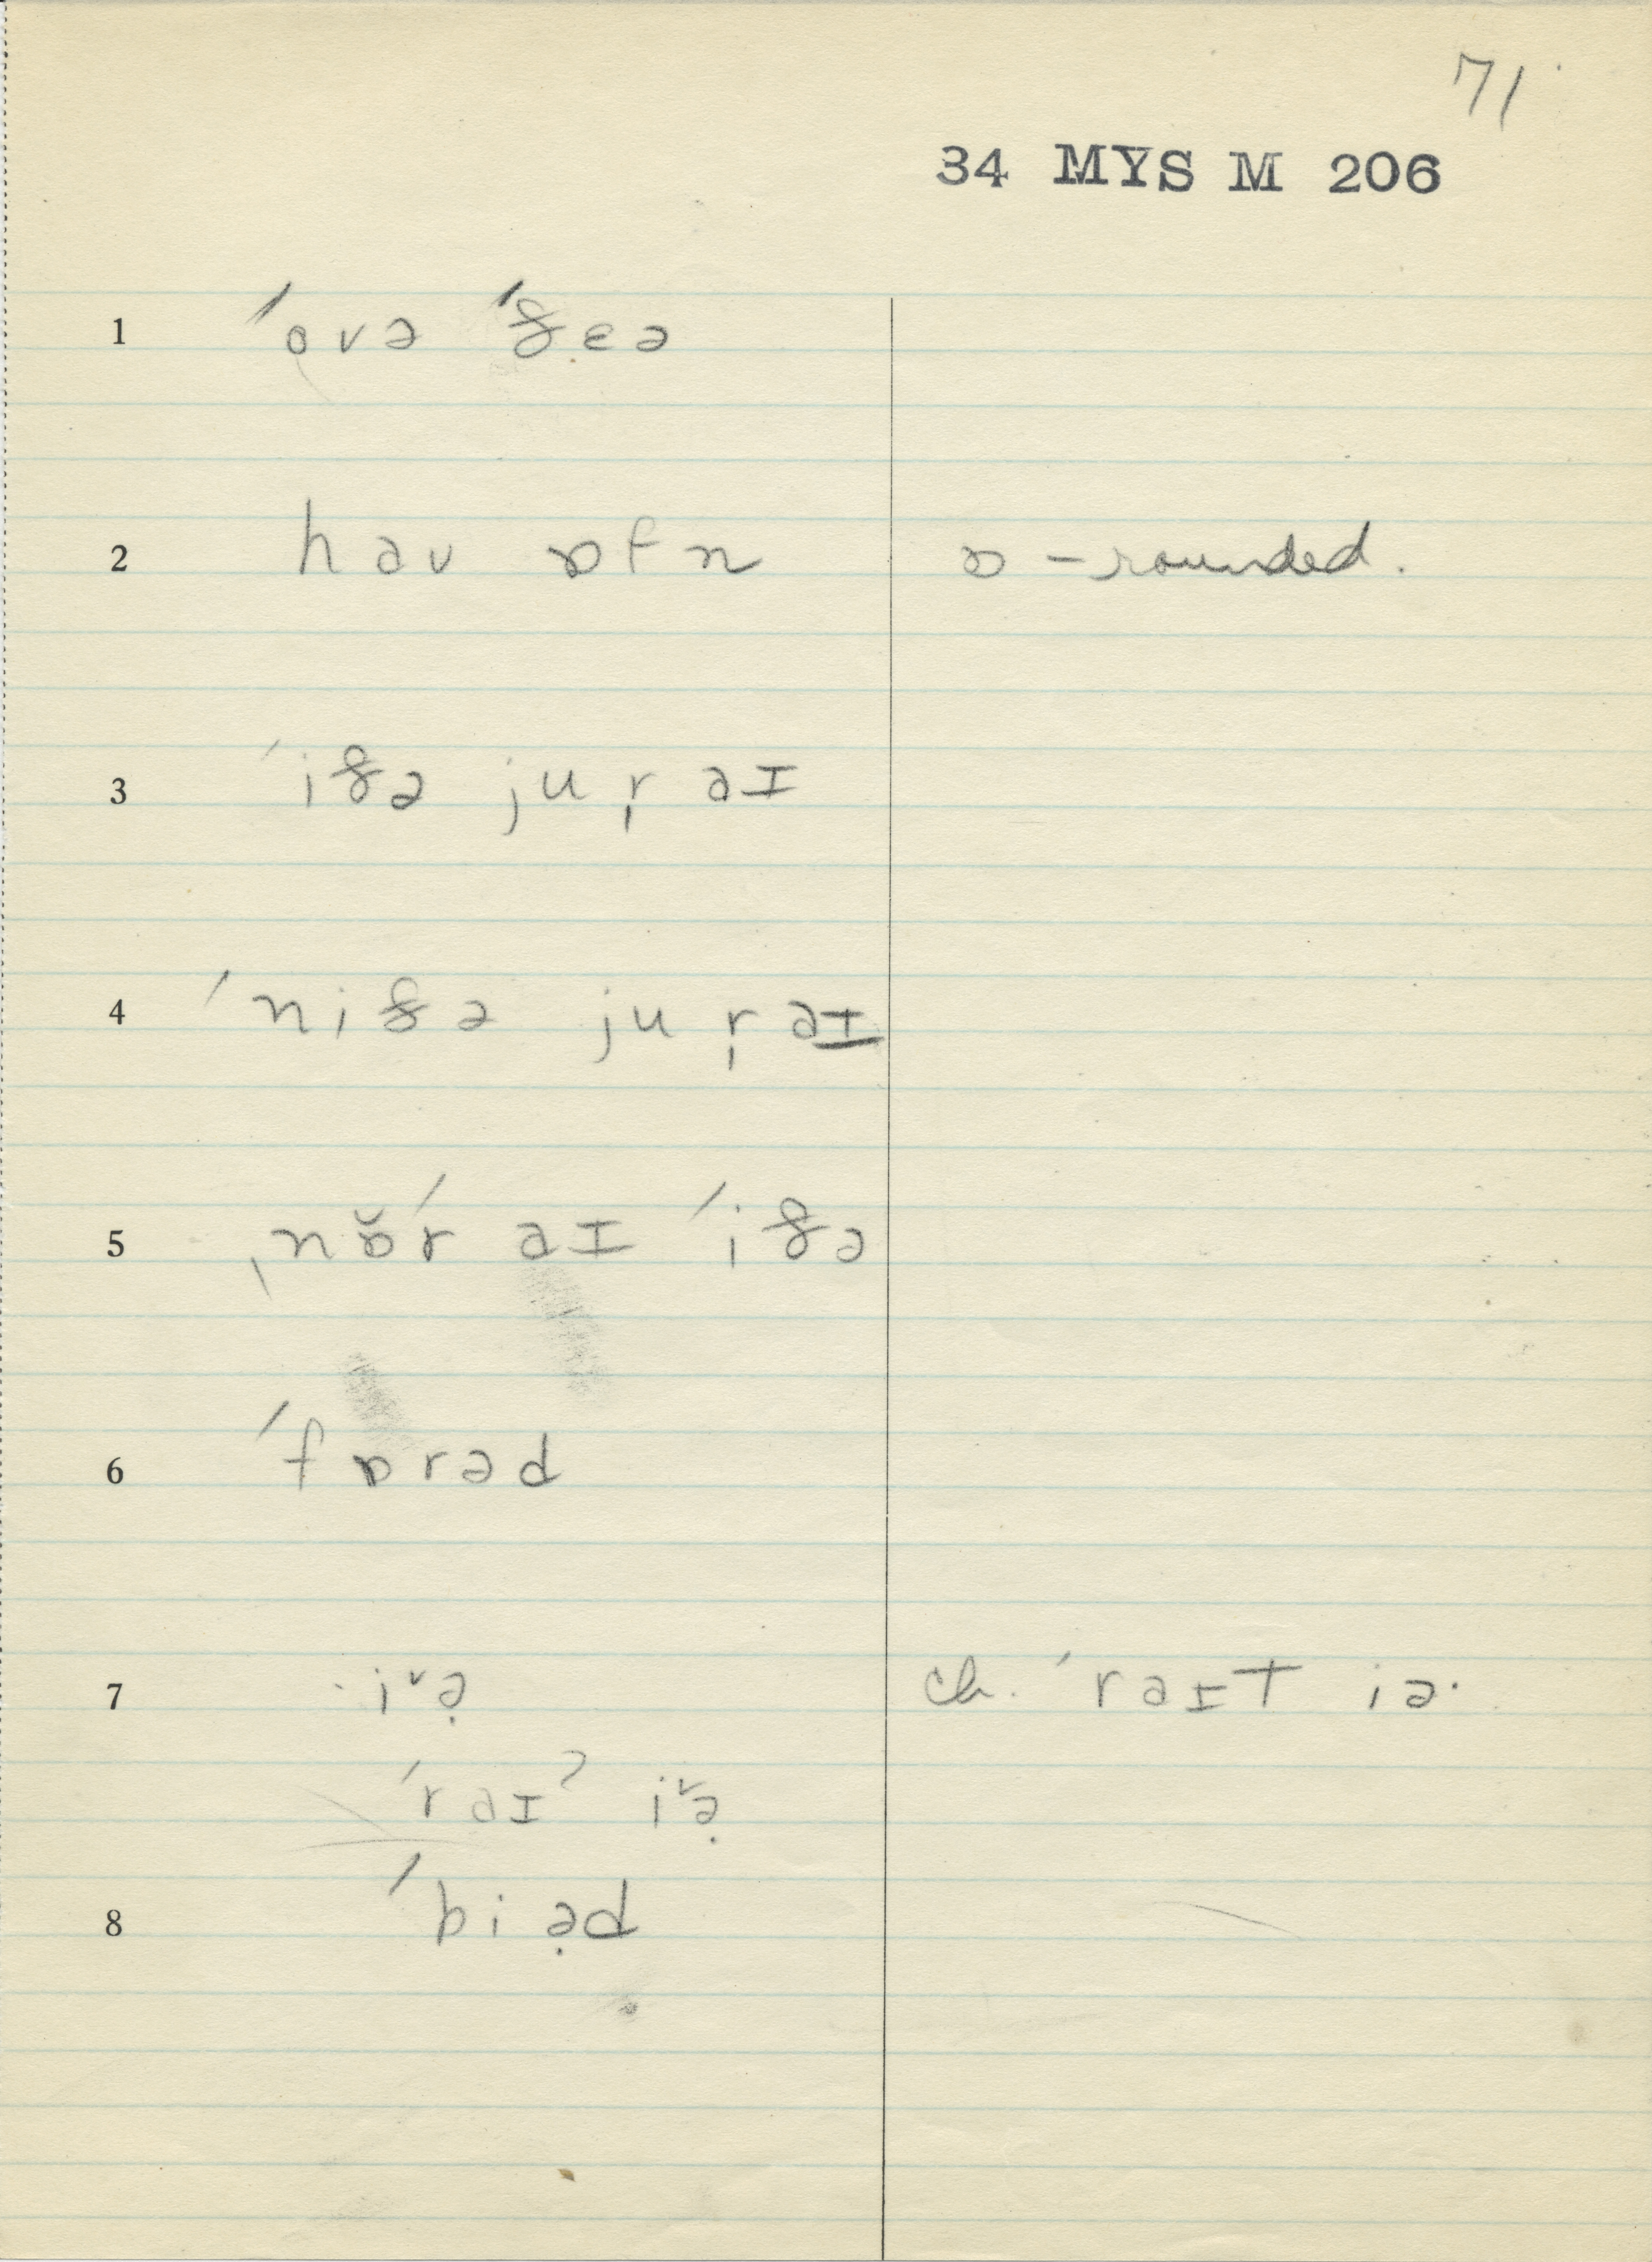 71
34 MYS M 206
1 ˈovə ˈðɛə
2 haʊ ɒfn ɒ – rounded.
3 ˈiðə ju ˌr əɪ
4 ˈniðə ju ˌr əɪ
5 ˌnɒ̆ˈr əɪ ˈiðə
6 ˈfɒrəd
7 iᵛə̣ ch. ˈrəɪt iə·
ˈrəɪˀ iᵛə̣
8 ˈbiə̣d